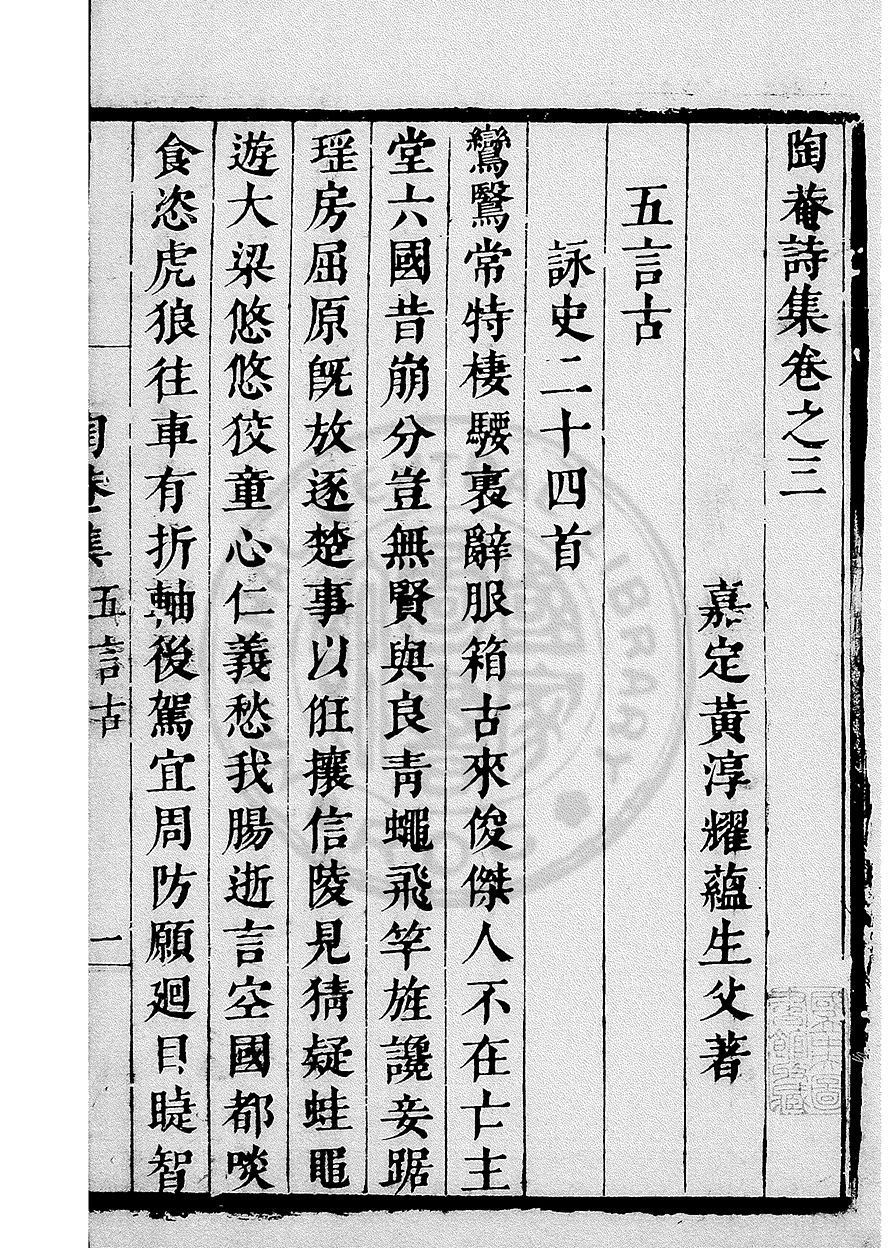 陶菴詩集卷之三
嘉定黃淳耀蘊生父著
五言古
詠史二十四首
鸞鷖常特棲騕褭辭服箱古來俊傑人不在亡主
堂六國昔崩分豈無賢與良靑蠅飛竿旌讒妾踞
瑶房屈原旣放逐楚事以俇攘信陵見猜疑蛙黽
遊大梁悠悠狡童心仁義愁我腸逝言空國都啖
食恣虎狼往車有折軸後駕宜周防願廻日睫智
陶菴集 五言古 一